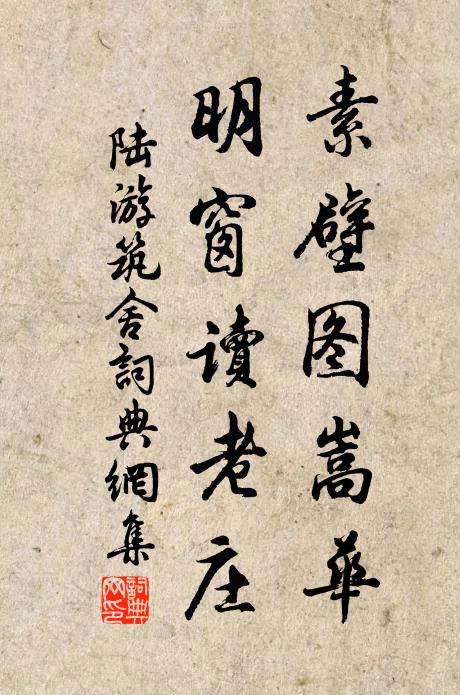 素壁图嵩華
明窗讀老庄
陆游筑舍詞典網集
詞典网印